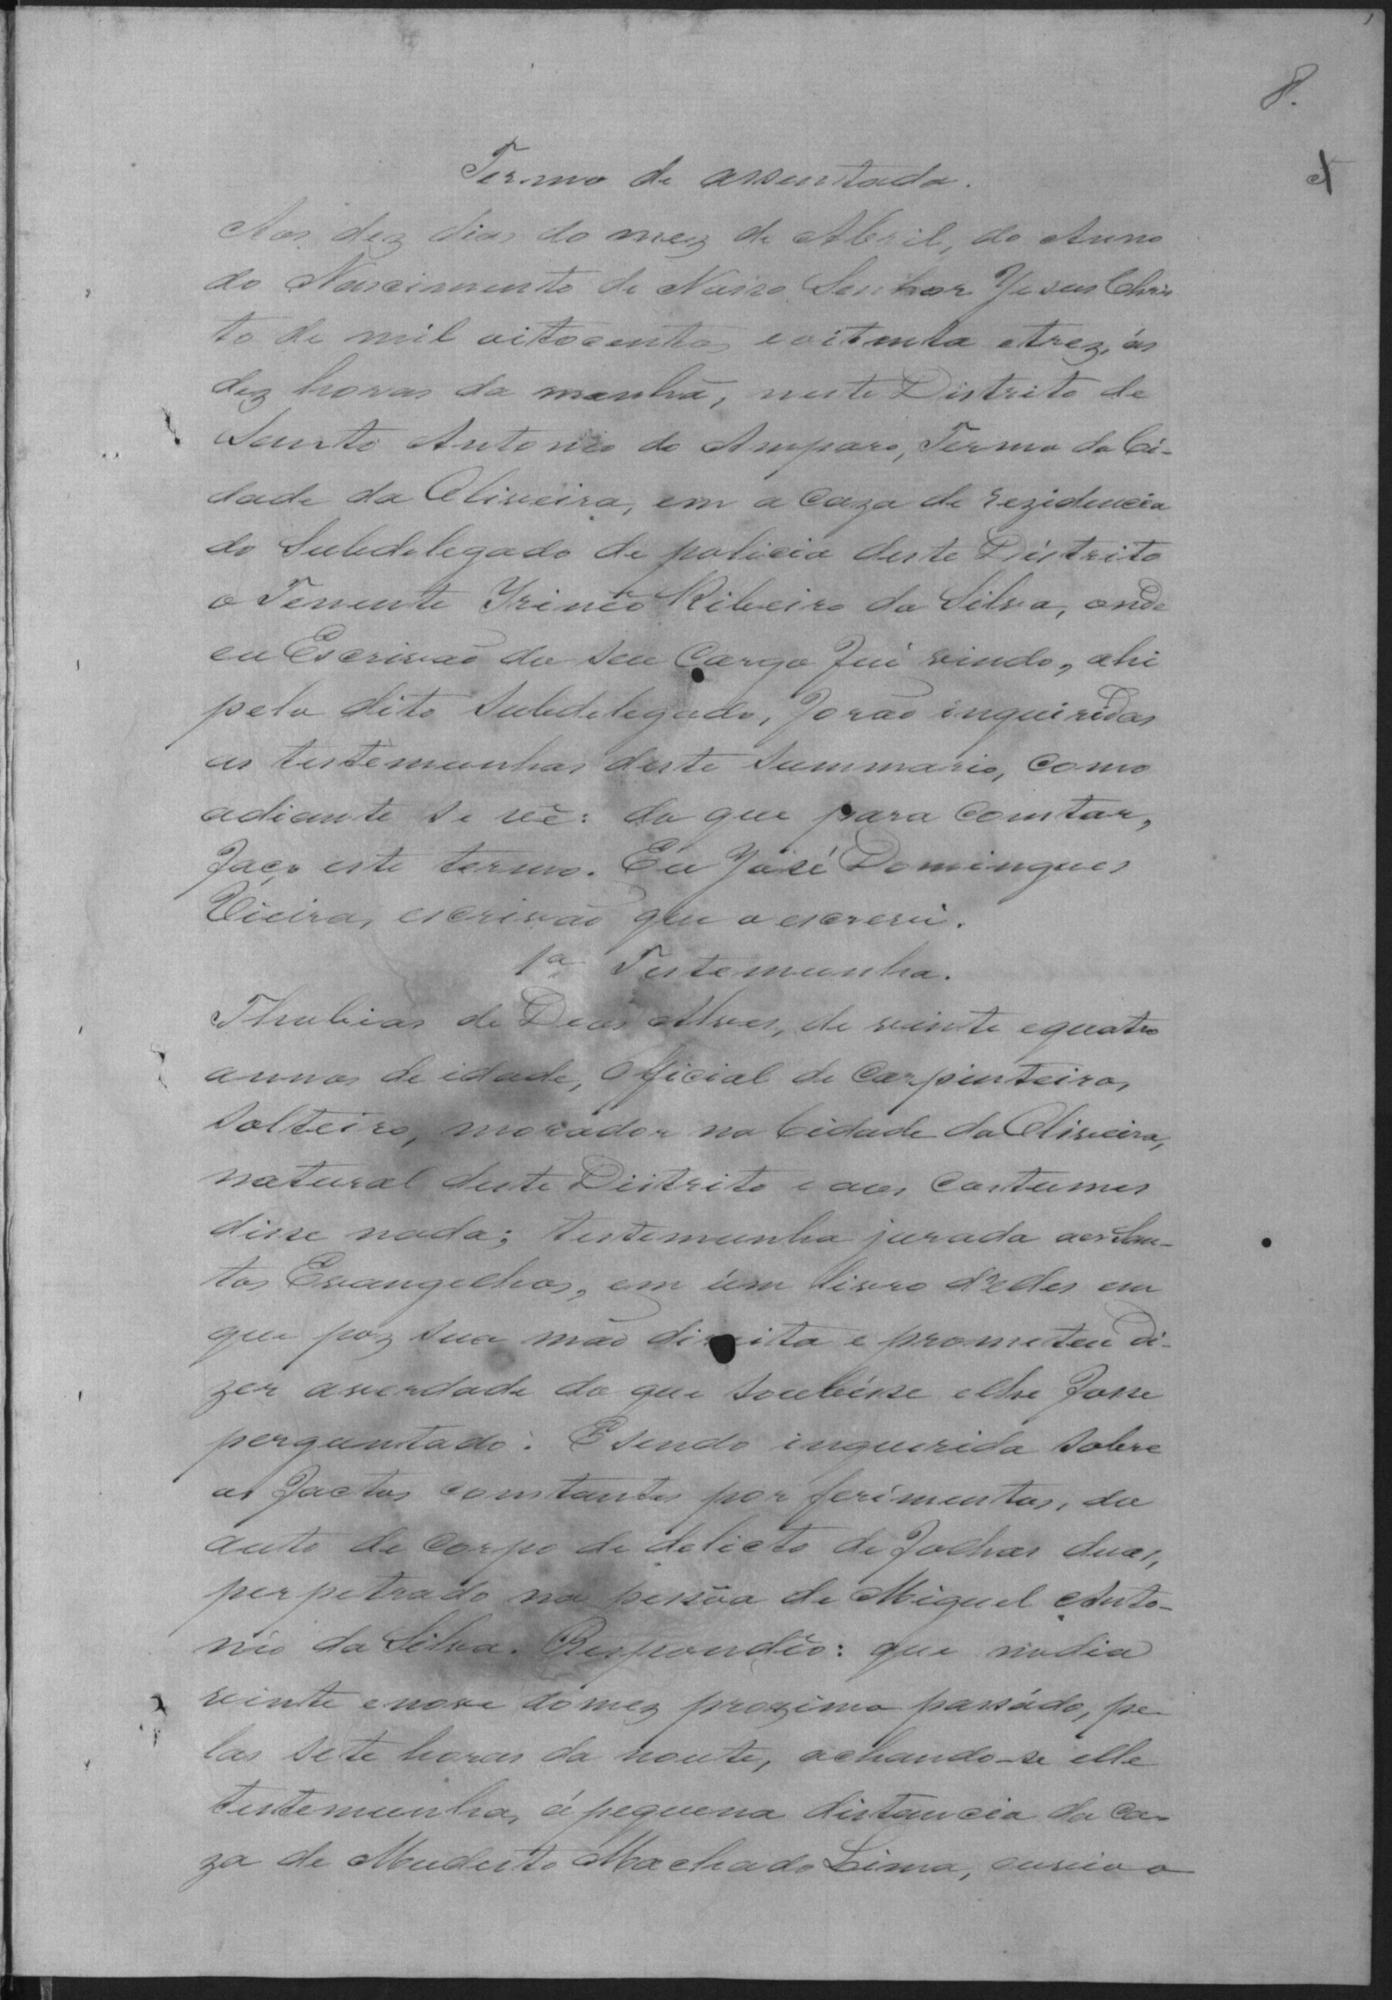 8.
Termo de assentada.
Aos dez dias do mez de Abril, do Anno
do Nascimento de Nosso Senhor Jesus Chris
to de mil oitocentos e oitenta e trez, ás
dez horas da manhã, neste Distrito de
Santo Antonio do Amparo, Termo da Ci-
dade da Oliveira, em a Caza de rezidencia
do Subdelegado de policia deste Distrito
o Tenente Irinêo Ribeiro da Silva, onde
eu Escrivão do seu Cargo fui vindo, ahi
pelo dito Subdelegado, forão inqueridas
as testemunhas deste Summario, como
adiante se vê: do que para constar,
faço este termo. Eu José Domingues
Vieira, escrivão que o escrevi.
1a Testemunha.
Thobias de Deos Alves, de vinte e quatro
annos de idade, Official de Carpinteiro,
Solteiro, morador na Cidade da Oliveira,
natural deste Distrito e aos costumes
disse nada; testemunha jurada aos San-
tos Evangelhos, em úm livro d'elles em
que poz sua mão direita e prometeu di-
zer a verdade do que soubésse e lhe fosse
perguntado. E sendo inquerida sobre
os factos constantes por ferimentos, do
auto de corpo de delicto de folhas duas,
perpetrado na pessôa de Miguel Anto-
nio da Silva. Respondêo: que no dia
vinte e nove do mez proximo passádo, pe-
las sete horas da noute, achando-se elle
testemunha, á pequena distancia da ca-
za de Modesto Machado Lima, ouvio o